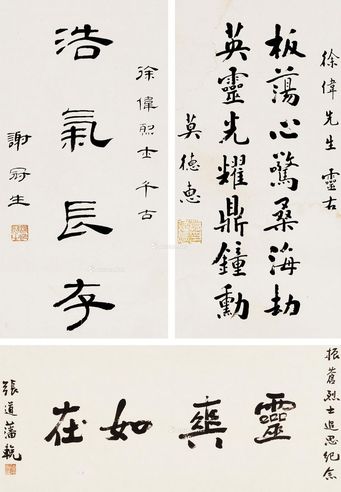 徐偉先生靈右
板蕩心驚桑海劫
英靈光耀鼎鐘勳
莫德惠
徐偉烈士千古
浩氣長存
謝冠生
振蒼烈士追思紀念
靈爽如在
張道藩輓